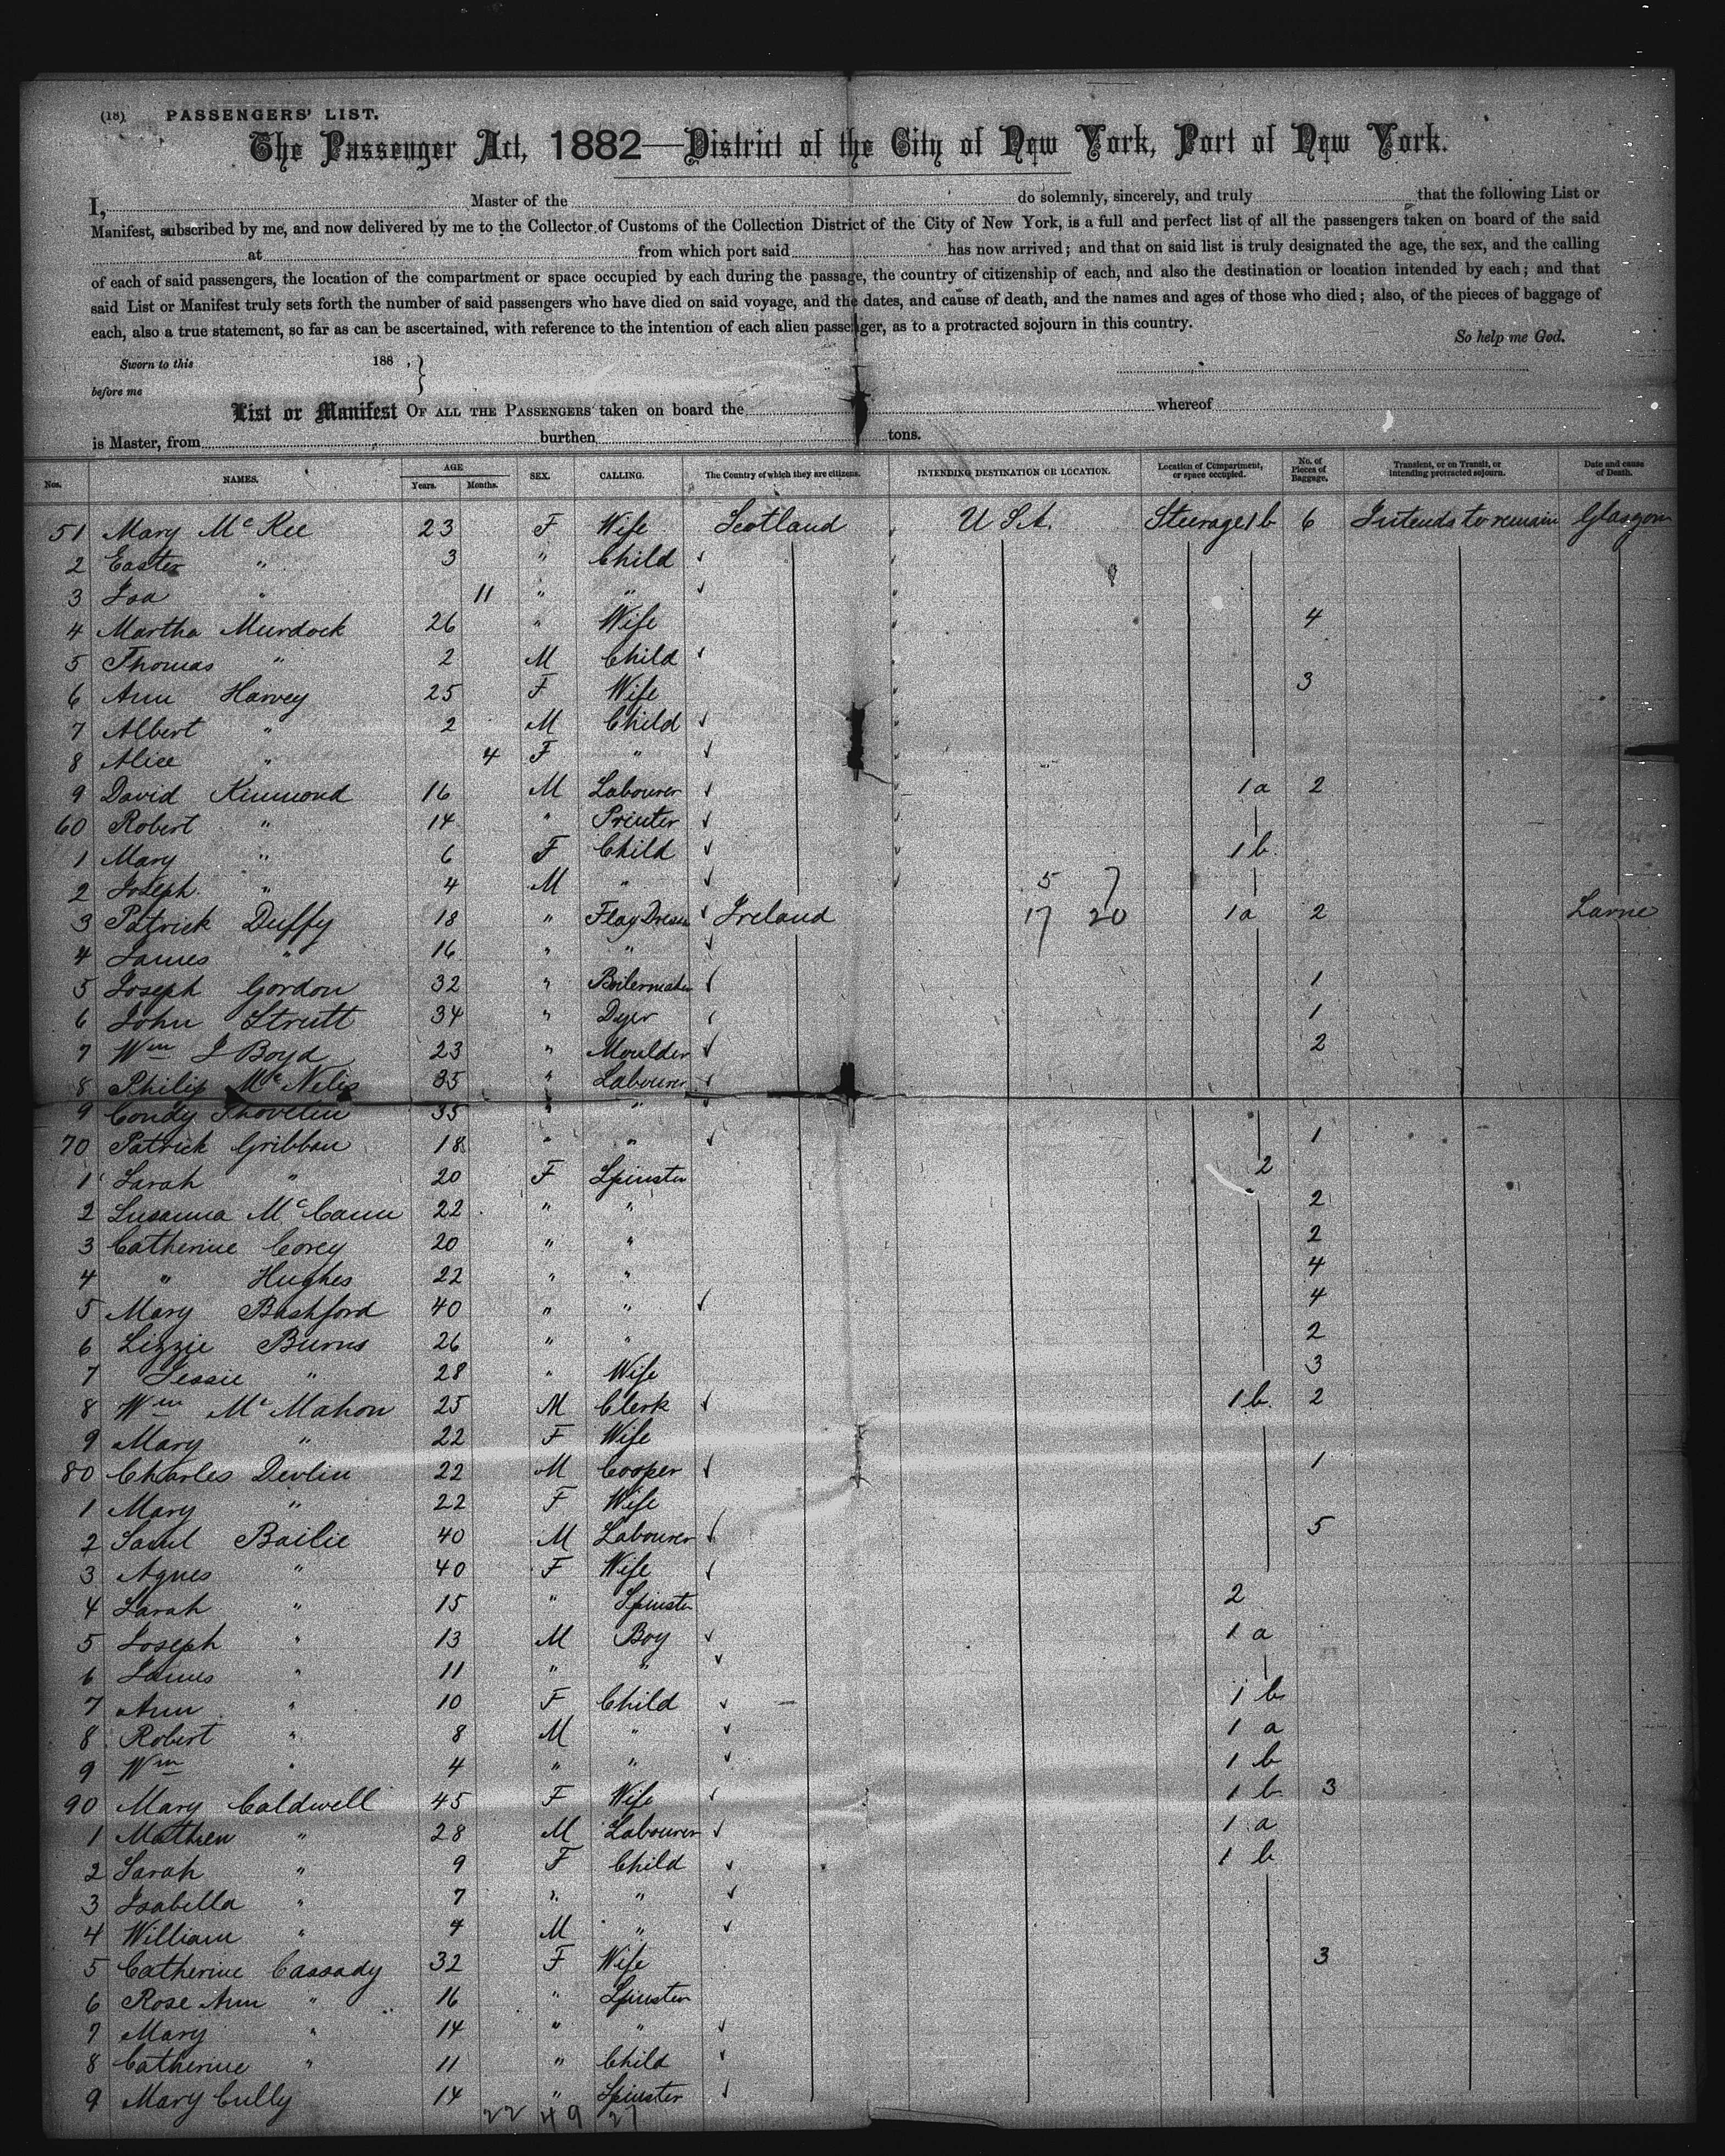 (18) PASSENGERS' LIST.
The Passenger Act, 1882—District of the City of New York, Port of New York.
I, Master of the do solemnly, sincerely, and truly that the following List or
Manifest, subscribed by me, and now delivered by me to the Collector of Customs of the Collection District of the City of New York, is a full and perfect list of all the passengers taken on board of the said
at from which port said has now arrived; and that on said list is truly designated the age, the sex, and the calling
of each of said passengers, the location of the compartment or space occupied by each during the passage, the country of citizenship of each, and also the destination or location intended by each; and that
said List or Manifest truly sets forth the number of said passengers who have died on said voyage, and the dates, and cause of death, and the names and ages of those who died; also, of the pieces of baggage of
each, also a true statement, so far as can be ascertained, with reference to the intention of each alien passenger, as to a protracted sojourn in this country.
So help me God.
Sworn to this 188 , }
before me
List or Manifest OF ALL THE PASSENGERS taken on board the whereof
is Master, from burthen tons.
Nos. NAMES. AGE Years. Months. SEX. CALLING. The Country of which they are citizens. INTENDING DESTINATION OR LOCATION. Location of Compartment, or space occupied. No. of Pieces of Baggage. Transient, or on Transit, or intending protracted sojourn. Date and cause of Death.
51 Mary McKee 23 F Wife Scotland U S A. Steerage 1b 6 Intends to remain Glasgow
2 Easter " 3 " Child
3 Isa " 11 " "
4 Martha Murdock 26 " Wife 4
5 Thomas " 2 M Child
6 Ann Harvey 25 F Wife 3
7 Albert " 2 M Child
8 Alice " 4 F "
9 David Kinmond 16 M Labourer 1a 2
60 Robert " 14 " Printer
1 Mary " 6 F Child 1b.
2 Joseph " 4 M " 5 7
3 Patrick Duffy 18 " Flax Dresser Ireland 17 20 1a 2 Larne
4 James " 16 " "
5 Joseph Gordon 32 " Boilermaker 1
6 John Strutt 34 " Dyer 1
7 Wm J Boyd 23 " Moulder 2
8 Philip McNelis 35 " Labourer
9 Condy Shovelin 35 " "
70 Patrick Gribban 18 " " 1
1 Sarah " 20 F Spinster 2
2 Susanna McCann 22 " " 2
3 Catherine Corey 20 " " 2
4 " Hughes 22 " " 4
5 Mary Bashford 40 " " 4
6 Lizzie Burns 26 " " 2
7 Jessie " 28 " Wife 3
8 Wm McMahon 25 M Clerk 1b. 2
9 Mary " 22 F Wife
80 Charles Devlin 22 M Cooper 1
1 Mary " 22 F Wife
2 Saml Bailie 40 M Labourer 5
3 Agnes " 40 F Wife
4 Sarah " 15 " Spinster 2
5 Joseph " 13 M Boy 1 a
6 James " 11 " "
7 Ann " 10 F Child 1 b
8 Robert " 8 M " 1 a
9 Wm " 4 " " 1 b
90 Mary Caldwell 45 F Wife 1 b 3
1 Mathew " 28 M Labourer 1 a
2 Sarah " 9 F Child 1 b
3 Isabella " 7 " "
4 William " 4 M "
5 Catherine Cassady 32 F Wife 3
6 Rose Ann " 16 " Spinster
7 Mary " 14 " "
8 Catherine " 11 " Child
9 Mary Cully 14 " Spinster
22 49 27